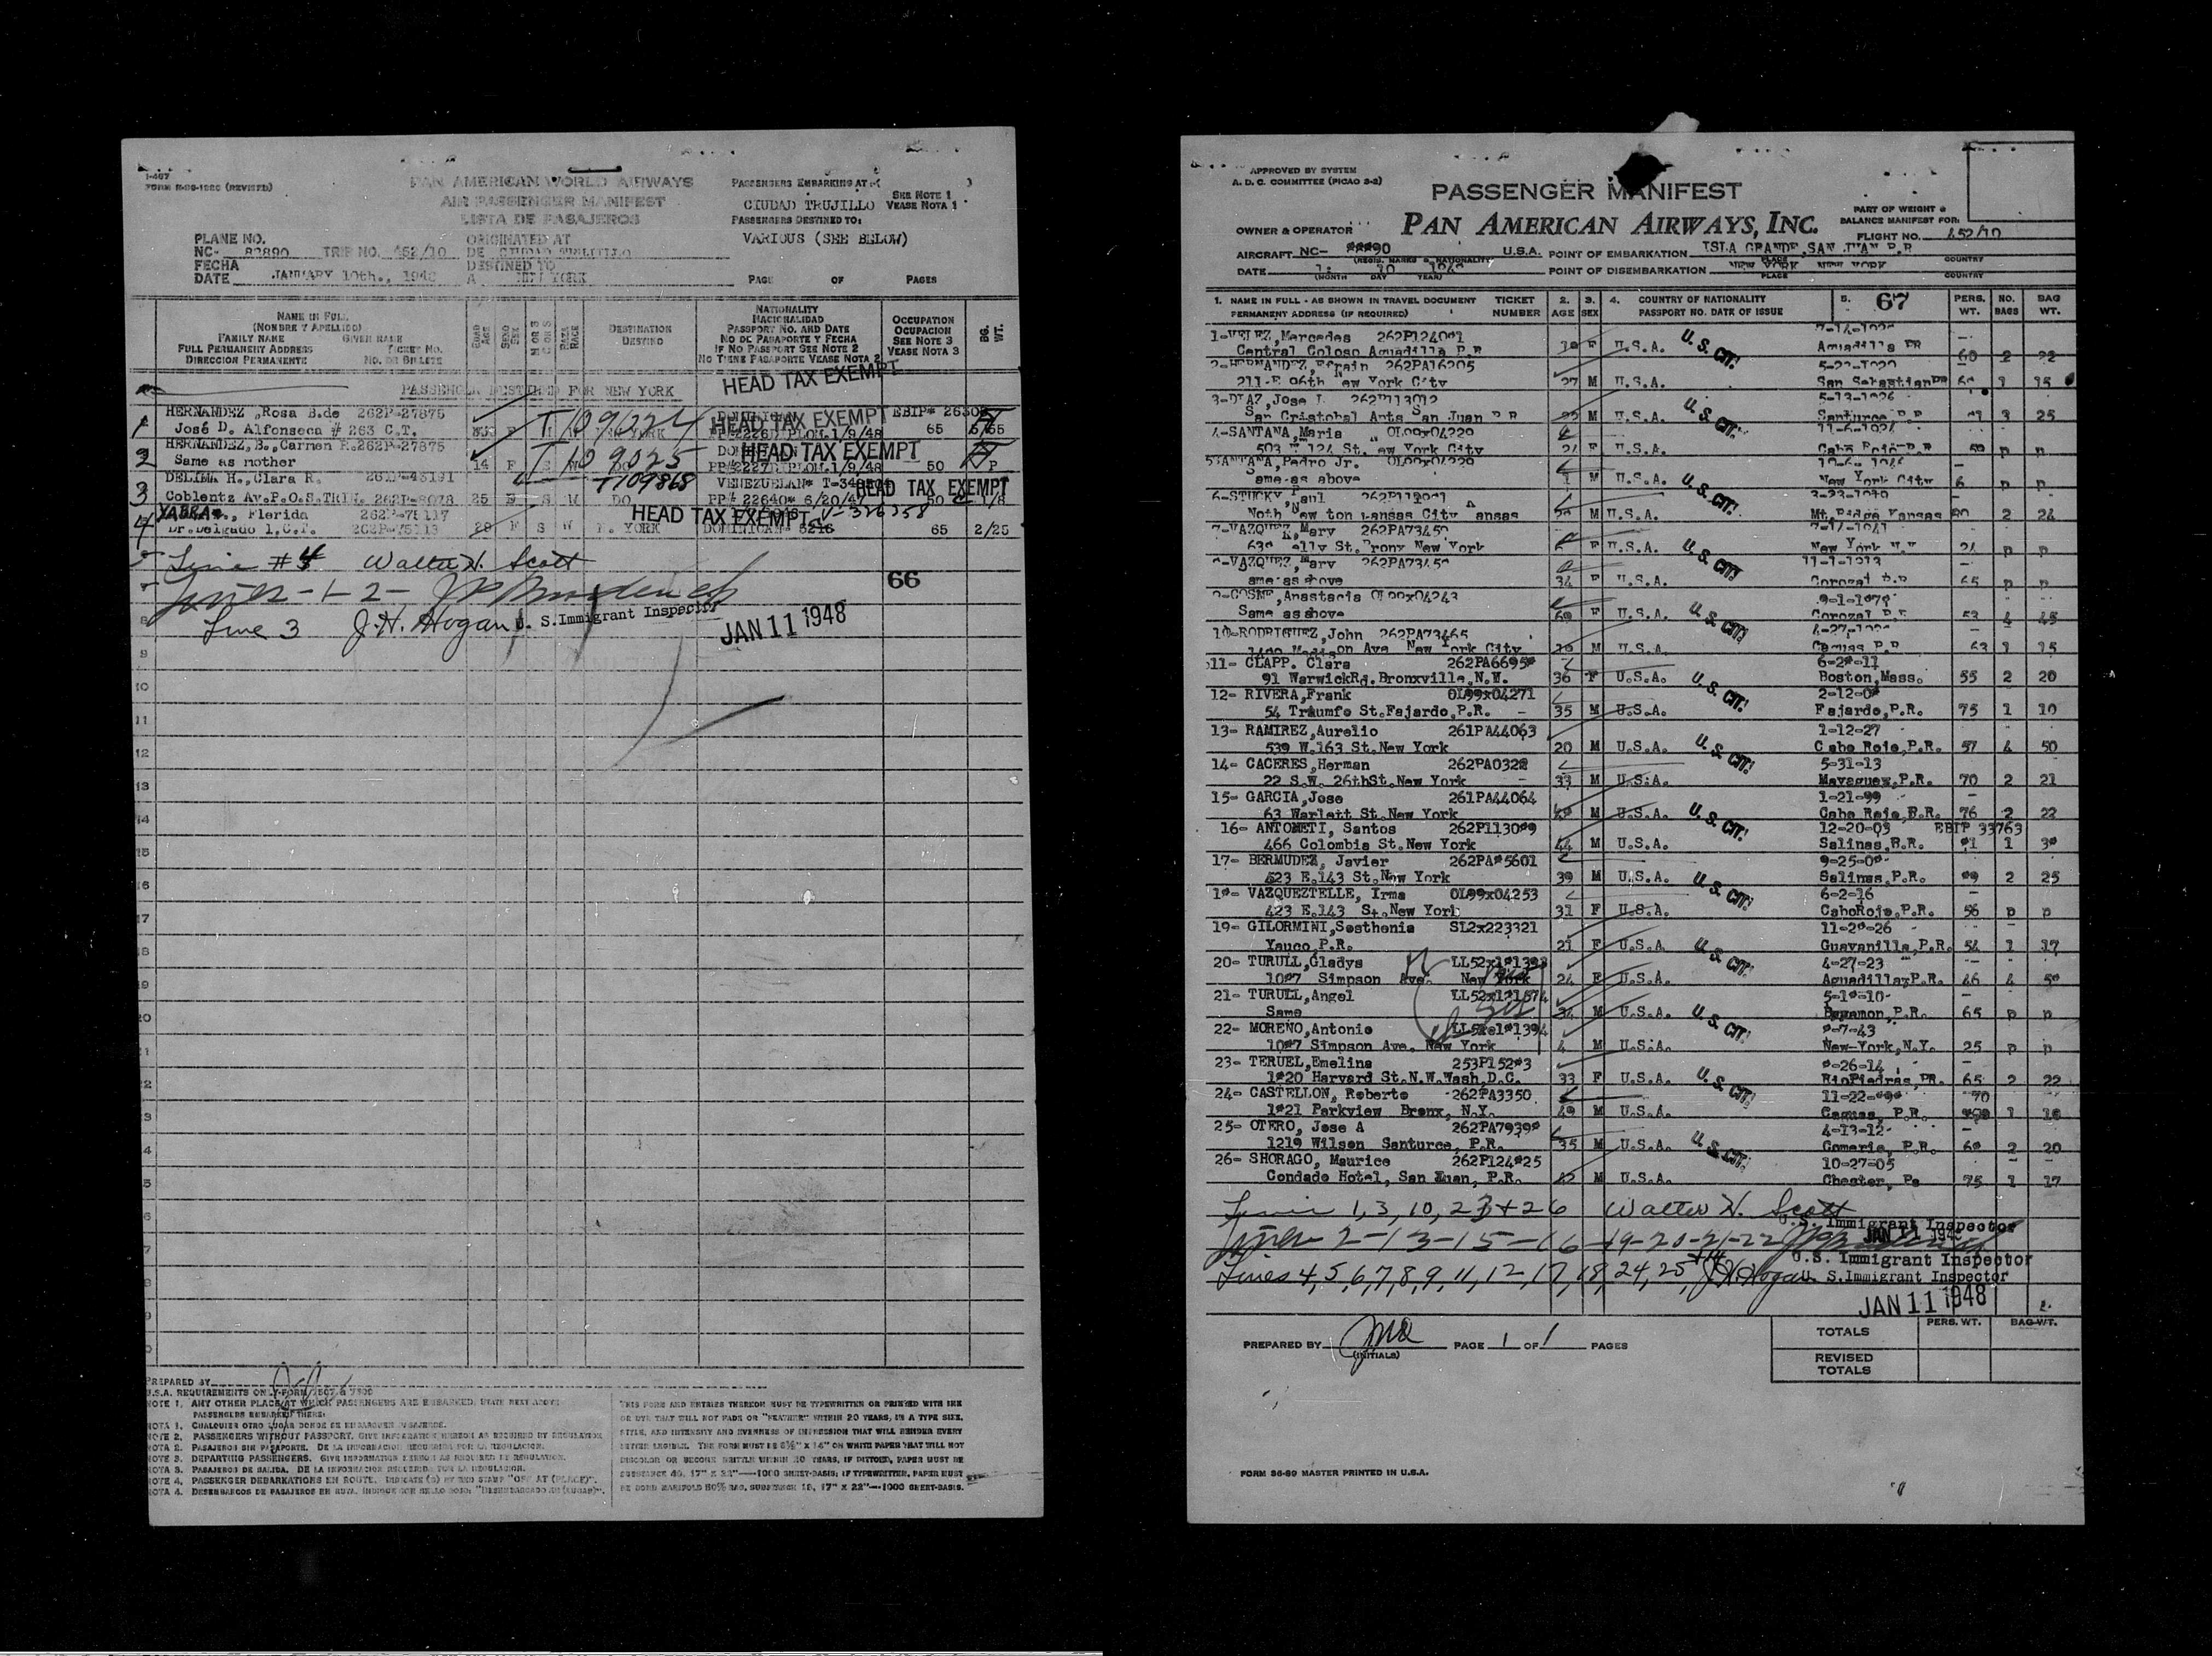 I-467
FORM (REVISED)
PAN AMERICAN WORLD AIRWAYS
AIR PASSENGER MANIFEST
LISTA DE PASAJEROS
PASSENGERS EMBARKING AT:
CIUDAD TRUJILLO
SEE NOTE 1
VEASE NOTA 1
PASSENGERS DESTINED TO:
VARIOUS (SEE BELOW)
PLANE NO.
NC- TRIP NO. 452/10
ORIGINATED AT
DE CIUDAD TRUJILLO
FECHA
DATE JANUARY 10th.,
DESTINED TO
A NEW YORK
PAGE OF PAGES
NAME IN FULL
(NOMBRE Y APELLIDO)
FAMILY NAME GIVEN NAME
FULL PERMANENT ADDRESS TICKET NO.
DIRECCION PERMANENTE NO. DE BILLETE
EDAD AGE
SEXO SEX
M OR S
C OR S
RAZA RACE
DESTINATION
DESTINO
NATIONALITY
NACIONALIDAD
PASSPORT NO. AND DATE
NO DE PASAPORTE Y FECHA
IF NO PASSPORT SEE NOTE 2
NO TIENE PASAPORTE VEASE NOTA 2
OCCUPATION
OCUPACION
SEE NOTE 3
VEASE NOTA 3
BG. WT.
PASSENGERS DESTINED FOR NEW YORK
HEAD TAX EXEMPT
1 HERNANDEZ ,Rosa B.de 262P-27875
José D. Alfonseca # 263 C.T.
HEAD TAX EXEMPT
65
2 HERNANDEZ,B.,Carmen R.262P-27875
Same as mother 14 F S W DO
HEAD TAX EXEMPT
50 P
3 DELIMA H.,Clara R.
Coblentz Av.P.O.S.TRIN. 25 S W DO
VENEZUELAN*
PP# 22640* 6/20/47
HEAD TAX EXEMPT
50
4 Florida
Dr.Delgado 1,C.T. F S W N. YORK
HEAD TAX EXEMPT
DOMINICAN*
65 2/25
Line #4 Walter H. Scott
66
Lines - 1 - 2 -
Line 3 J.H. Hogan U. S.Immigrant Inspector
JAN 11 1948
PREPARED BY
U.S.A. REQUIREMENTS ONLY-FORM
NOTE 1. ANY OTHER PLACE AT WHICH PASSENGERS ARE EMBARKED, STATE NEXT ABOVE
PASSENGERS EMBARKED THERE.
NOTA 1. CUALQUIER OTRO LUGAR DONDE SE EMBARQUEN PASAJEROS.
NOTE 2. PASSENGERS WITHOUT PASSPORT, GIVE INFORMATION HEREON AS REQUIRED BY REGULATION
NOTA 2. PASAJEROS SIN PASAPORTE. DE LA INFORMACION REQUERIDA POR LA REGULACION.
NOTE 3. DEPARTING PASSENGERS. GIVE INFORMATION HEREON AS REQUIRED BY REGULATION.
NOTA 3. PASAJEROS DE SALIDA. DE LA INFORMACION REQUERIDA POR LA REGULACION.
NOTE 4. PASSENGER DEBARKATIONS EN ROUTE. INDICATE (S) BY RED STAMP "OFF AT (PLACE)".
NOTA 4. DESEMBARCOS DE PASAJEROS EN RUTA. INDIQUE CON SELLO ROJO: "DESEMBARCADO EN (LUGAR)".
THIS FORM AND ENTRIES THEREON MUST BE TYPEWRITTEN OR PRINTED WITH INK
OR DYE THAT WILL NOT FADE OR "FEATHER" WITHIN 20 YEARS, IN A TYPE SIZE,
STYLE, AND INTENSITY AND EVENNESS OF IMPRESSION THAT WILL RENDER EVERY
LETTER LEGIBLE. THE FORM MUST BE 8½" X 14" ON WHITE PAPER THAT WILL NOT
DISCOLOR OR BECOME BRITTLE WITHIN 20 YEARS, IF DITTOED, PAPER MUST BE
SUBSTANCE 40. 17" X 22"—1000 SHEET-BASIS; IF TYPEWRITTEN, PAPER MUST
BE BOND MANIFOLD 50% RAG. SUBSTANCE 18, 17" X 22"—1000 SHEET-BASIS.
APPROVED BY SYSTEM
A. D. C. COMMITTEE (PICAO 3-2)
PASSENGER MANIFEST
OWNER & OPERATOR PAN AMERICAN AIRWAYS, INC.
PART OF WEIGHT &
BALANCE MANIFEST FOR:
FLIGHT NO. 452/10
AIRCRAFT NC- U.S.A. POINT OF EMBARKATION ISLA GRANDE,SAN JUAN P.R
(REGIS. MARKS & NATIONALITY) PLACE COUNTRY
DATE 1. 10 POINT OF DISEMBARKATION NEW YORK NEW YORK
(MONTH DAY YEAR) PLACE COUNTRY
1. NAME IN FULL - AS SHOWN IN TRAVEL DOCUMENT TICKET
PERMANENT ADDRESS (IF REQUIRED) NUMBER
2. AGE 3. SEX
4. COUNTRY OF NATIONALITY
PASSPORT NO. DATE OF ISSUE
5. 67
PERS. WT. NO. BAGS BAG WT.
1-VELEZ,Mercedes
Central Coloso Aguadilla P.R F U.S.A. U. S. CIT! Aguadilla PR 60 2 22
2-HERNANDEZ,Efrain 262PA16205
211-E 96th New York City 27 M U.S.A. San Sebastian PR 1 15
3-DIAZ,Jose
San Cristobal Apts San Juan P.R M U.S.A. U. S. CIT! Santurce P.R 3 25
4-SANTANA,Maria OL99x04229
503 124 St. New York City F U.S.A. Cabo Rojo P.R p p
SANTANA,Pedro Jr. OL99x04229
Same as above 1 M U.S.A. U. S. CIT! New York City 6 p p
6-STUCKY Paul
Noth Newton Kansas City Kansas M U.S.A. Mt.Ridge Kansas 2 24
7-VAZQUEZ,Mary 262PA7345
Kelly St.Bronx New York F U.S.A. U. S. CIT! New York N.Y p p
VAZQUEZ,Mary
Same as above 34 F U.S.A. Corozal P.R 65 p p
COSME,Anastacia OL99x04243
Same as above 69 F U.S.A. U. S. CIT! Corozal P.R 53 4 45
10-RODRIGUEZ,John 262PA73465
Madison Ave New York City M U.S.A. Caguas P.R 63 1 15
11- CLAPP. Clara 262PA6695* 6-2*-11
91 WarwickRd.Bronxville,N.Y. 36 F U.S.A. U. S. CIT! Boston,Mass. 55 2 20
12- RIVERA,Frank OL99x04271 2-12-0*
54 Traumfo St.Fajardo,P.R. 35 M U.S.A. Fajardo,P.R. 75 1 10
13- RAMIREZ,Aurelio 261PA44063 1-12-27
539 W.163 St.New York 20 M U.S.A. U. S. CIT! Cabo Rojo,P.R. 57 4 50
14- CACERES,Herman 262PA032* 5-31-13
22 S.W. 26thSt.New York 33 M U.S.A. Mayaguez,P.R. 70 2 21
15- GARCIA,Jose 261PA44064 1-21-99
63 Warlett St.New York M U.S.A. U. S. CIT! Cabo Rojo,P.R. 76 2 22
16- ANTOMETI, Santos 262P1130*9 12-20-03 EBIP 33763
466 Colombia St.New York 44 M U.S.A. Salinas,P.R. *1 1 3*
17- BERMUDEZ, Javier 262PA*5601 9-25-0*
523 E.143 St.New York 39 M U.S.A. U. S. CIT! Salinas,P.R. *9 2 25
1*- VAZQUEZTELLE, Irma OL99x04253 6-2-16
423 E.143 St.New York 31 F U.S.A. CaboRojo,P.R. 56 p p
19- GILORMINI,Sosthenia SL2x223321 11-2*-26
Yauco P.R. 21 F U.S.A U. S. CIT! Guayanilla,P.R. 54 1 17
20- TURULL,Gladys 4-27-23
10*7 Simpson Ave. New York 24 F U.S.A. AguadillayP.R. 46 4 5*
21- TURULL,Angel 5-1*-10
Same M U.S.A. U. S. CIT! Bayamon,P.R. 65 p p
22- MORENO,Antonio *-7-43
10*7 Simpson Ave. New York 4 M U.S.A. New-York,N.Y. 25 p p
23- TERUEL,Emelina 253P152*3 *-26-14
1*20 Harvard St.N.W.Wash.D.C. 33 F U.S.A. U. S. CIT! RioPiedras,PR. 65 2 22
24- CASTELLON, Roberto 262PA3350 70
1*21 Parkview Bronx, N.Y. 49 M U.S.A. Caguas, P.R. 1 1*
25- OTERO, Jose A 262PA7939* 4-13-12
1219 Wilson Santurce, P.R. 35 M U.S.A. U. S. CIT! Comerio, P.R. 6* 2 20
26- SHORAGO, Maurice 262P124*25 10-27-05
Condado Hotel, San Juan, P.R. 42 M U.S.A. Chester, Pa 75 1 17
Lines 1, 3, 10, 23 + 26 Walter H. Scott
U.S. Immigrant Inspector
Lines 2-13-15-16-19-20-21-22 JAN 11 1948
U.S. Immigrant Inspector
Lines 4,5,6,7,8,9,11,12,17,18,24,25 +14 J.H. Hogan U. S.Immigrant Inspector
JAN 11 1948
PREPARED BY (INITIALS) PAGE 1 OF 1 PAGES
PERS. WT. BAG WT.
TOTALS
REVISED TOTALS
FORM 36-80 MASTER PRINTED IN U.S.A.